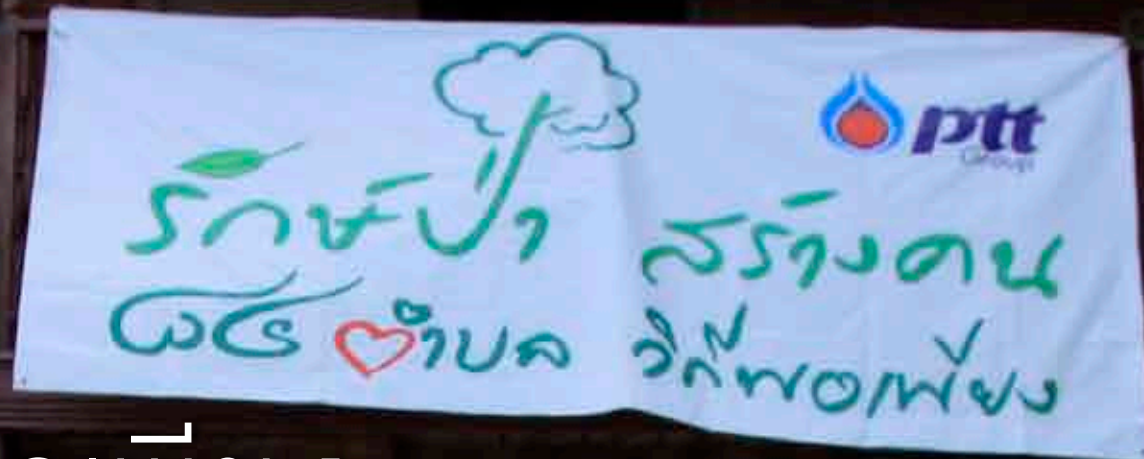 ptt
Group
รักษ์ป่า สร้างคน
๘๔ ตำบล วิถีพอเพียง